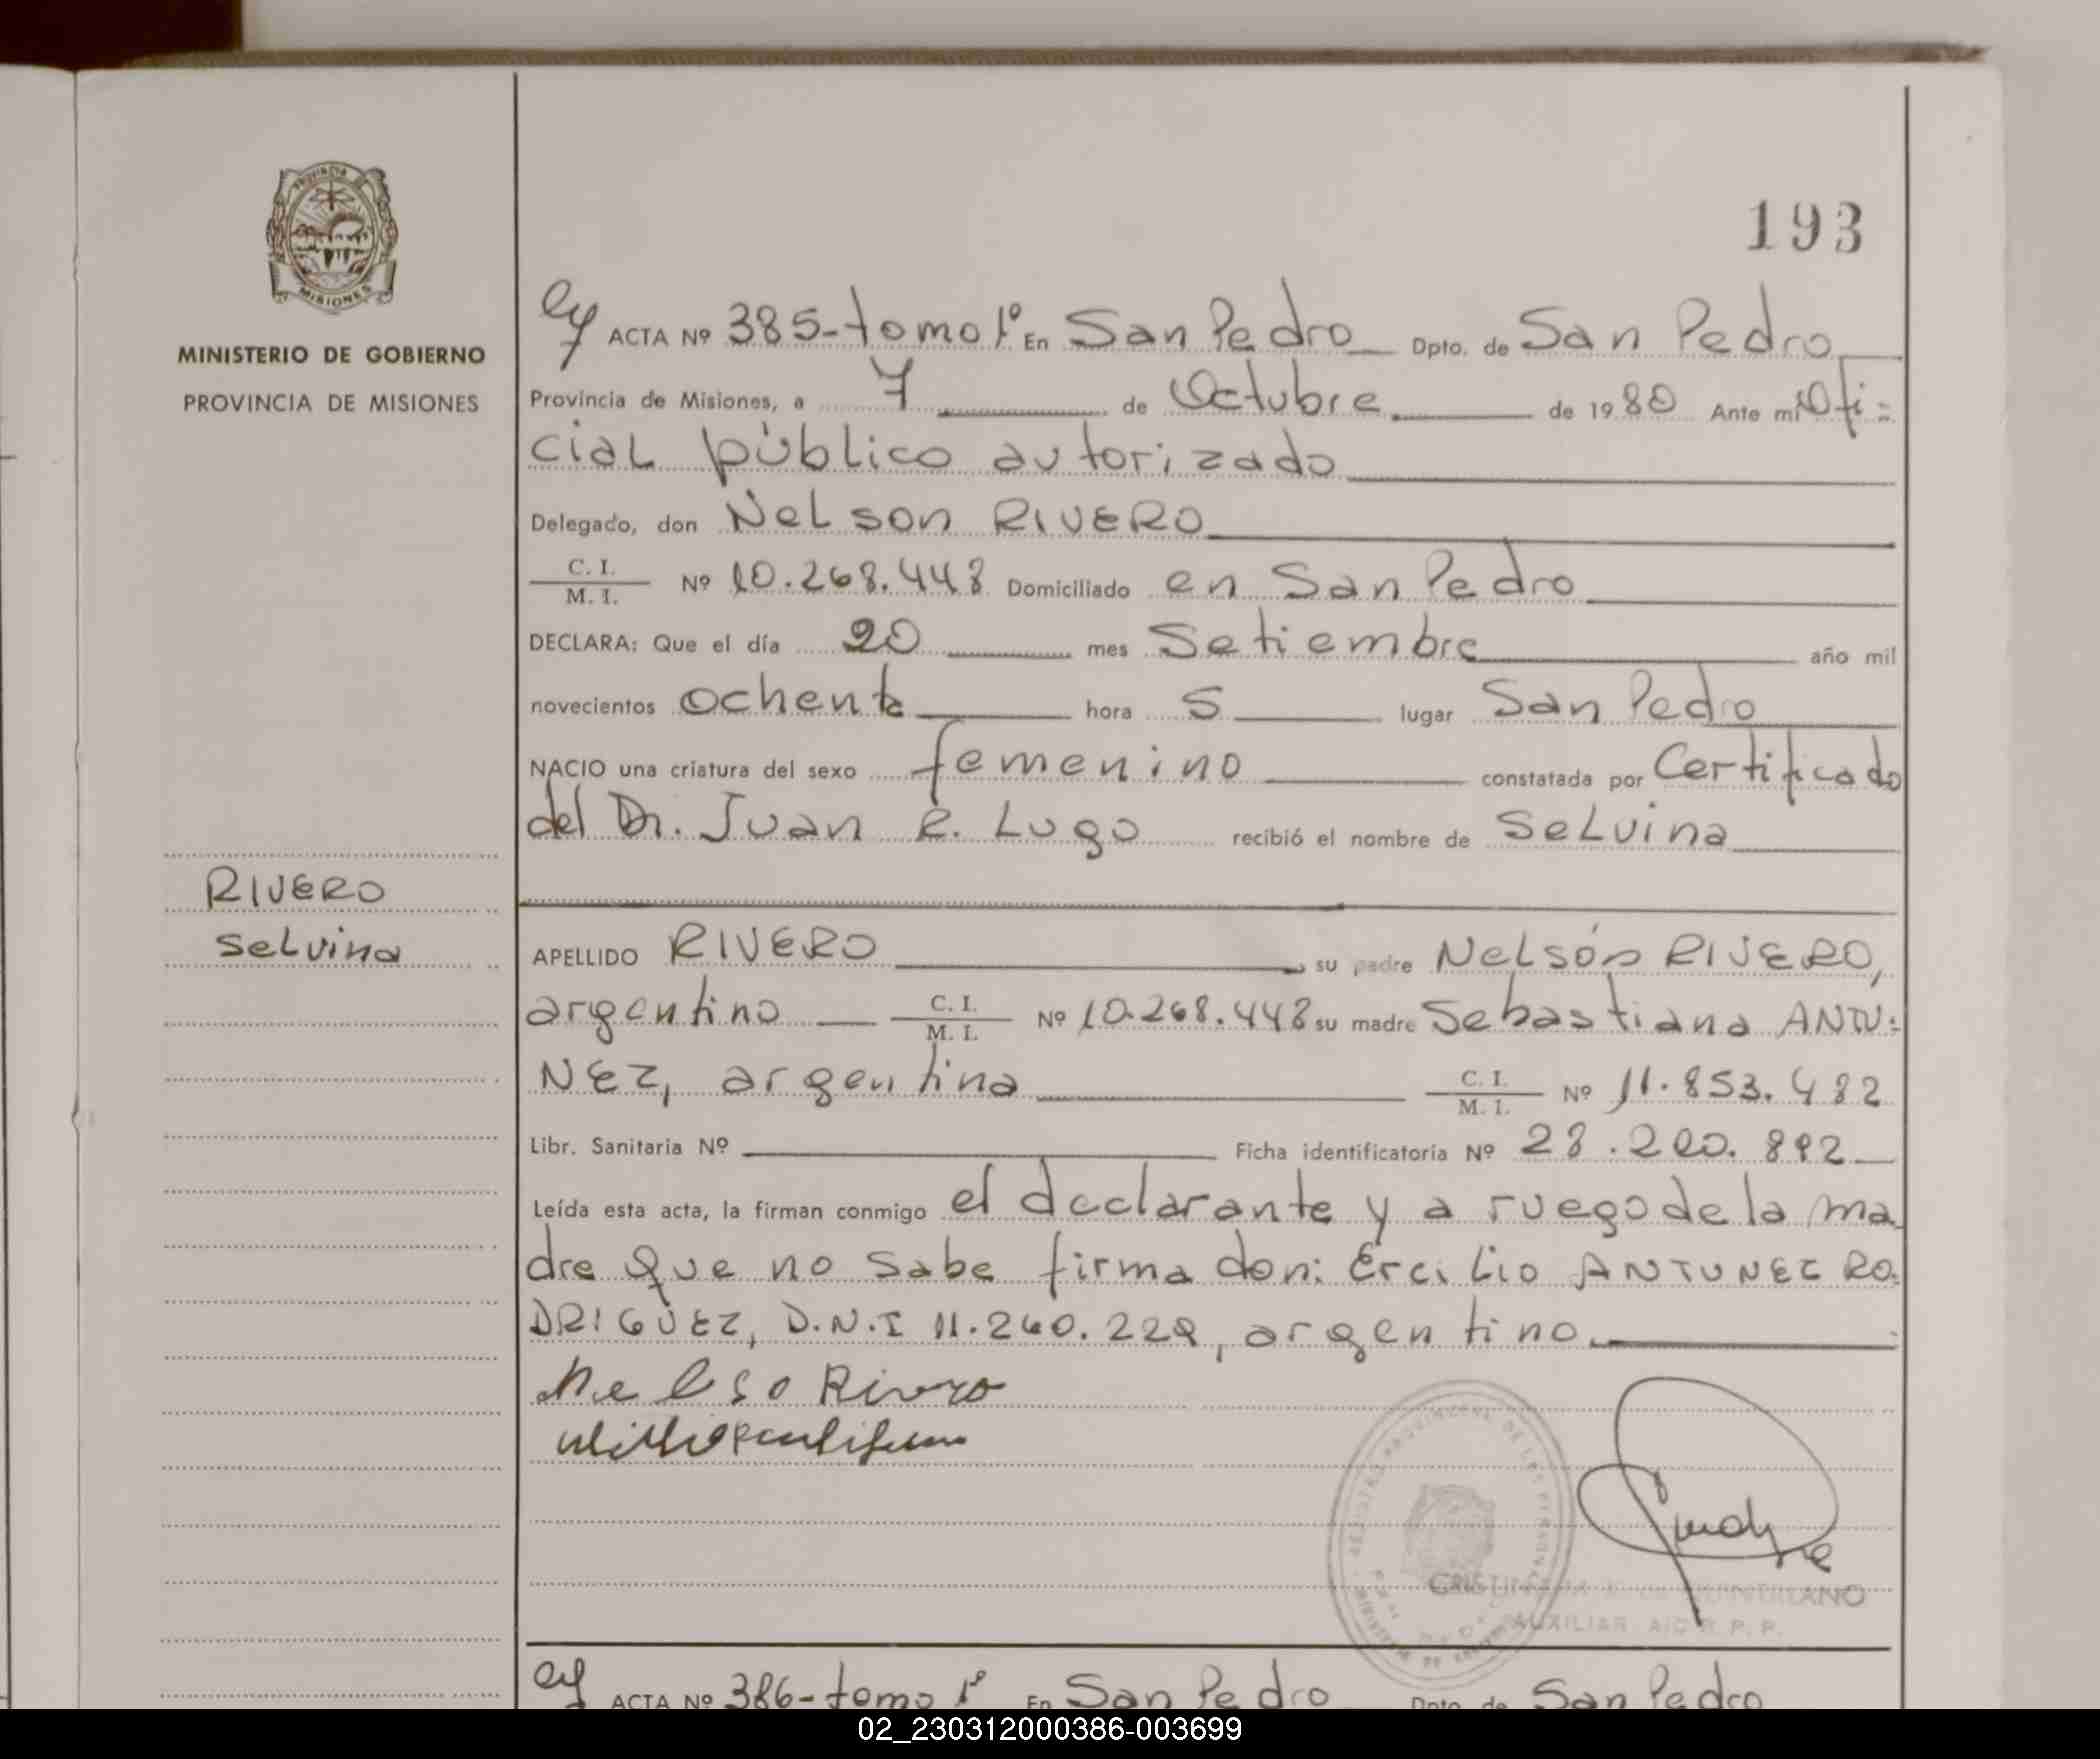 193
ACTA Nº 385-tomo 1º En San Pedro Dpto. de San Pedro
MINISTERIO DE GOBIERNO
PROVINCIA DE MISIONES
Provincia de Misiones, a 7 de Octubre de 1980 Ante mi Ofi-
cial público autorizado
Delegado, don Nelson RIVERO
C. I.
M. I. Nº 10.268.448 Domiciliado en San Pedro
DECLARA: Que el día 20 mes Setiembre año mil
novecientos ochenta hora 5 lugar San Pedro
NACIO una criatura del sexo femenino constatada por Certificado
del Dr. Juan R. Lugo recibió el nombre de Selvina
RIVERO
Selvina
APELLIDO RIVERO su padre Nelson RIVERO,
argentino C. I. M. I. Nº 10.268.448 su madre Sebastiana ANTU-
NEZ, argentina C. I. M. I. Nº 11.853.482
Libr. Sanitaria Nº Ficha identificatoria Nº 28.220.892
Leída esta acta, la firman conmigo el declarante y a ruego de la ma
dre que no sabe firma don: Ercilio ANTUNEZ RO-
DRIGUEZ, D.N.I 11.260.229, argentino.
Nelso Rivero
AUXILIAR
ACTA Nº 386-tomo 1º En San Pedro Dpto. de San Pedro
02_230312000386-003699